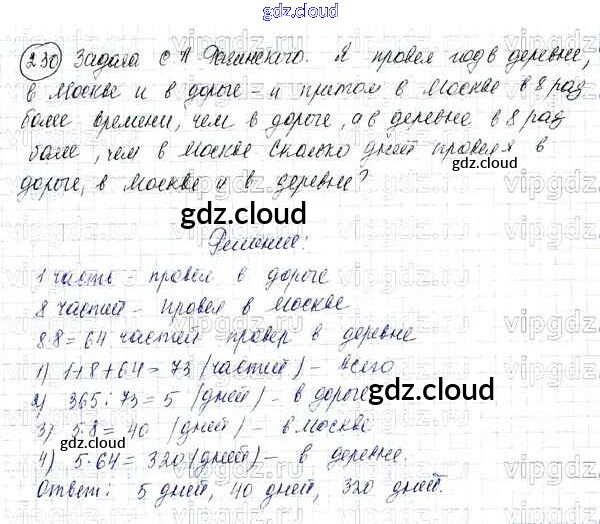 gdz.cloud
gdz.cloud
230 Задача С А Рачинского. Я провел год в деревне,
в Москве и в дороге - и притом в Москве в 8 раз
более времени, чем в дороге, а в деревне в 8 раз
более, чем в Москве Сколько дней провел я в
дороге, в Москве и в деревне?
gdz.cloud
gdz.cloud
Решение:
1 часть - провел в дороге
8 частей - провел в Москве
8·8 = 64 частей провел в деревне
1) 1+8+64 = 73 (частей) - всего
2) 365:73 = 5 (дней) - в дороге
gdz.cloud
3) 5·8 = 40 (дней) - в Москве
gdz.cloud
4) 5·64 = 320 (дней) - в деревне.
Ответ: 5 дней, 40 дней, 320 дней.
gdz.cloud